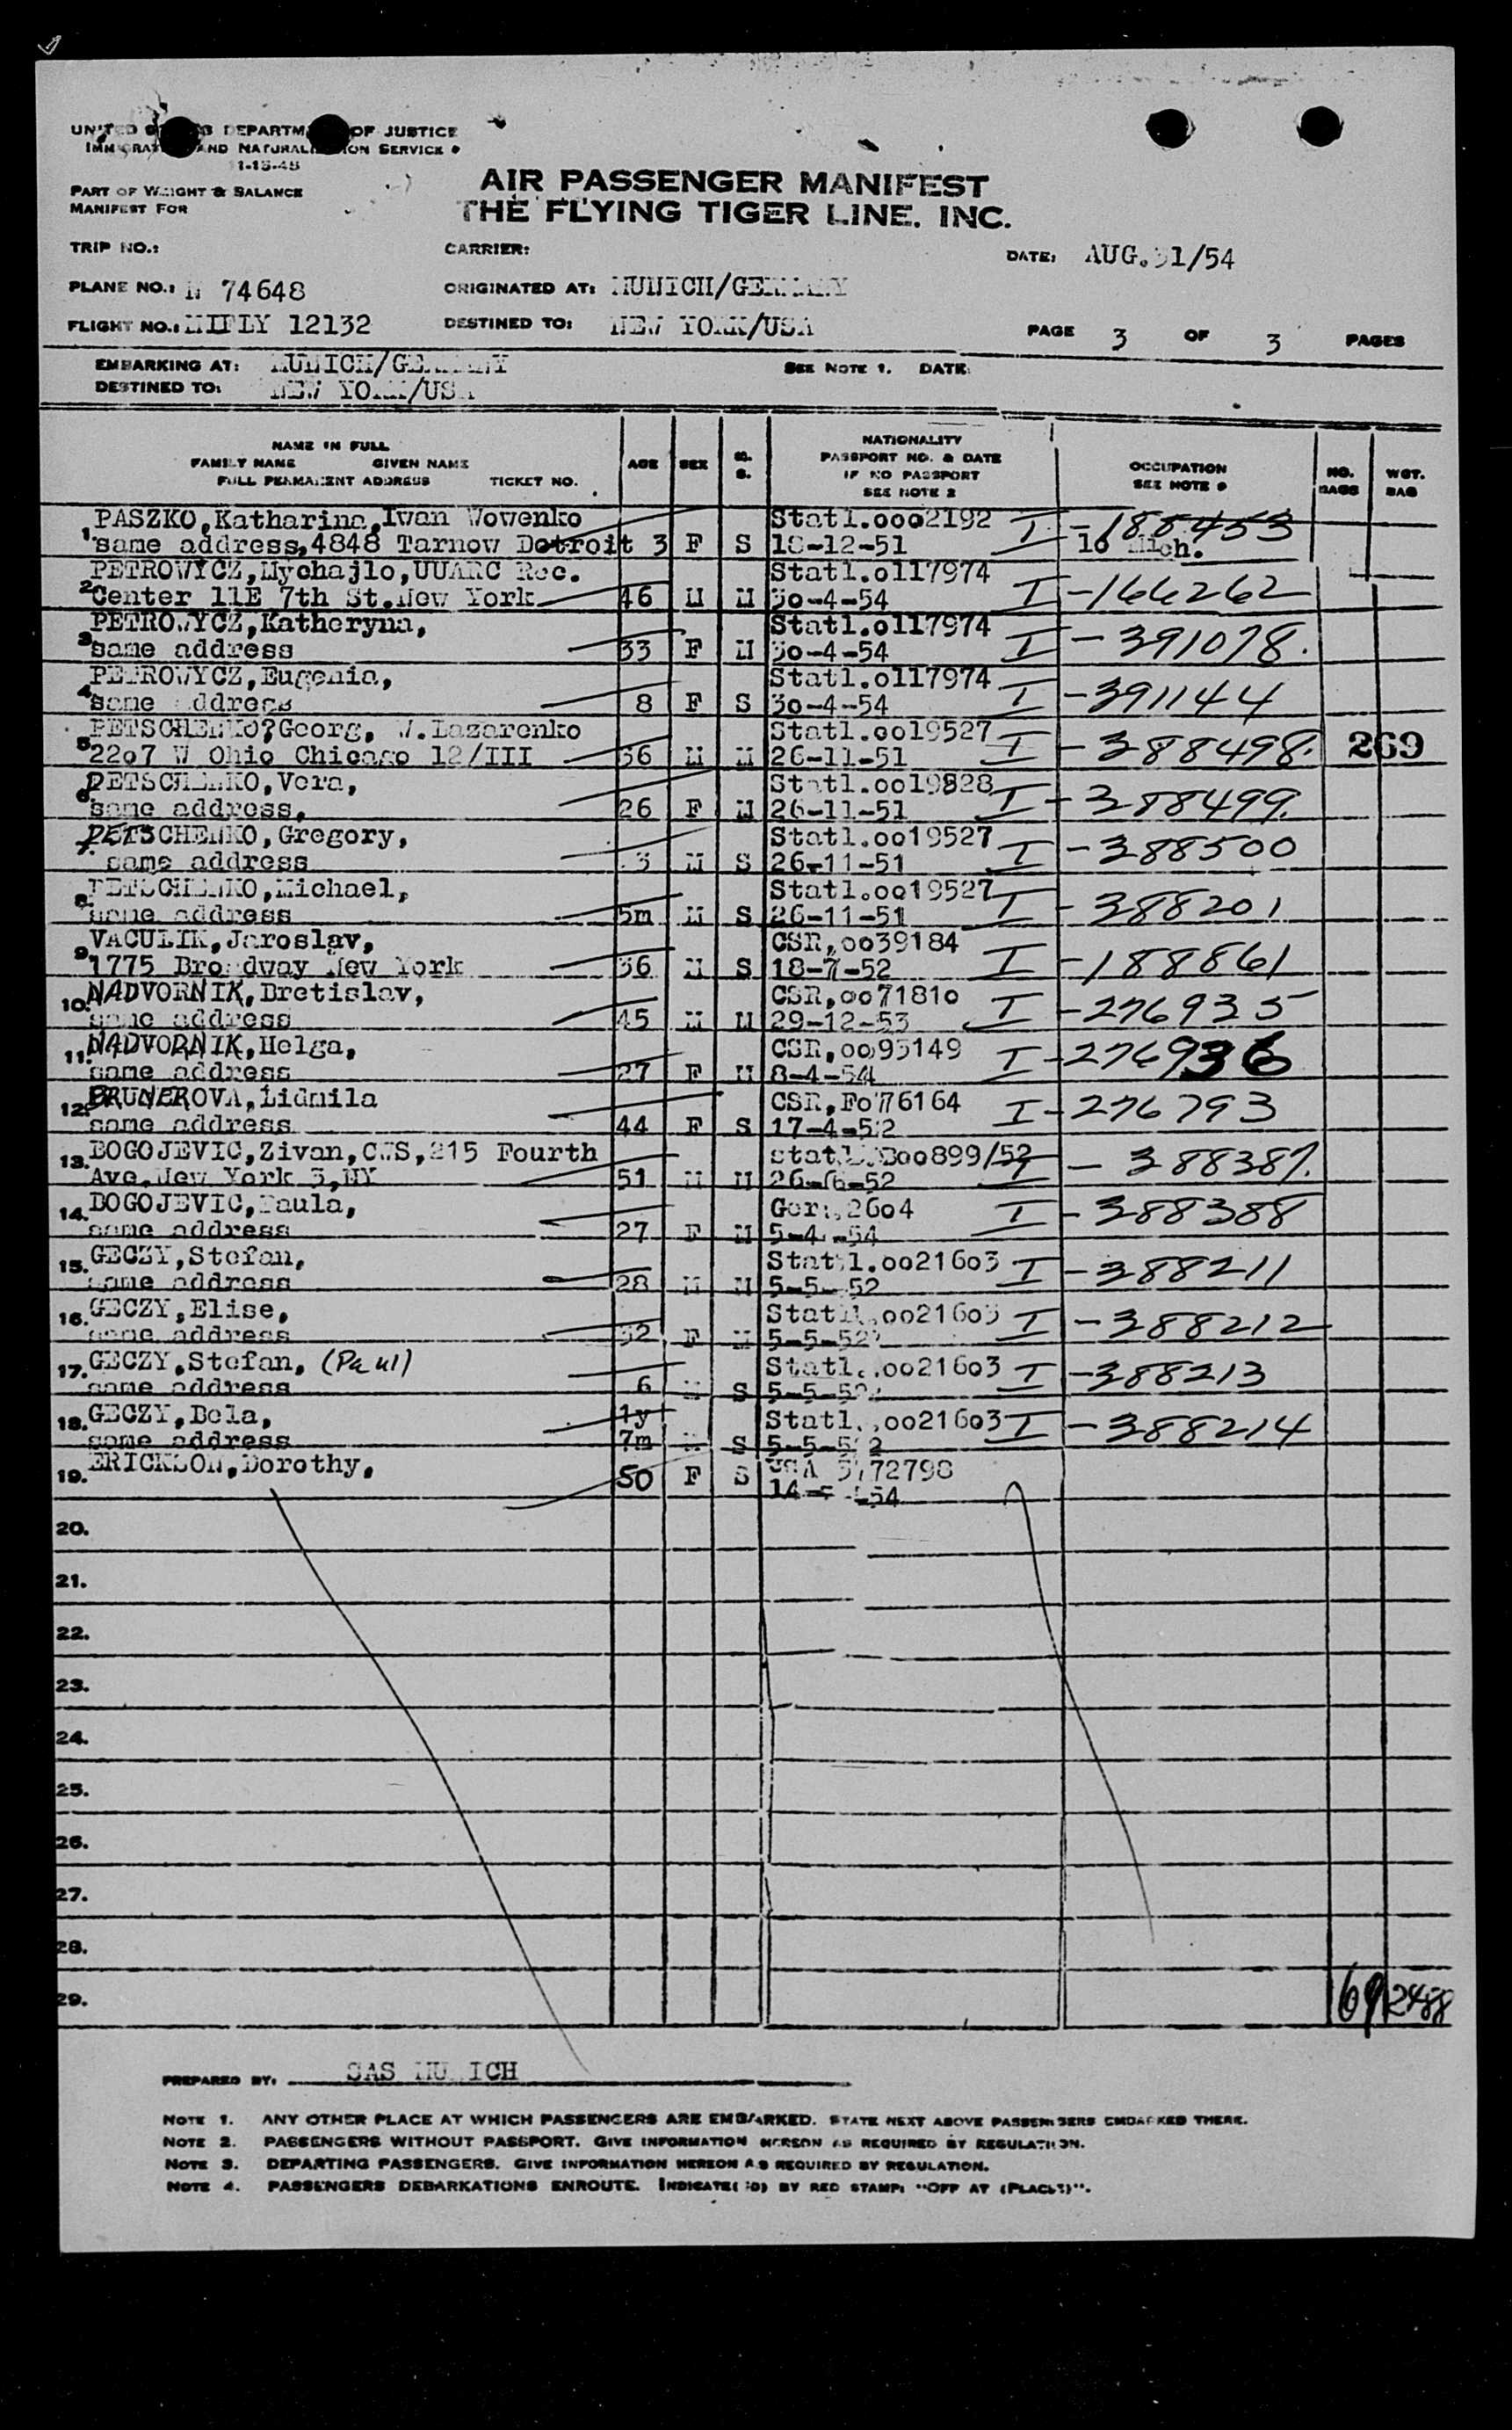 UNITED STATES DEPARTMENT OF JUSTICE
IMMIGRATION AND NATURALIZATION SERVICE
1-15-48
PART OF WEIGHT & BALANCE
MANIFEST FOR
AIR PASSENGER MANIFEST
THE FLYING TIGER LINE. INC.
TRIP NO.: CARRIER: DATE: AUG.31/54
PLANE NO.: N 74648 ORIGINATED AT: MUNICH/GERMANY
FLIGHT NO.: MIFLY 12132 DESTINED TO: NEW YORK/USA PAGE 3 OF 3 PAGES
EMBARKING AT: MUNICH/GERMANY SEE NOTE 1. DATE:
DESTINED TO: NEW YORK/USA
NAME IN FULL
FAMILY NAME GIVEN NAME
FULL PERMANENT ADDRESS TICKET NO.
AGE SEX M. S.
NATIONALITY
PASSPORT NO. & DATE
IF NO PASSPORT
SEE NOTE 2
OCCUPATION
SEE NOTE
NO. BAGS WGT. BAG
1. PASZKO, Katharina, Iwan Wowenko Statl.ooo2192 I-188453
same address, 4848 Tarnow Detroit 3 F S 18-12-51 10 Mich.
2. PETROWYCZ, Mychajlo, UUARC Rec. Statl.o117974
Center 11E 7th St.New York 46 M M 30-4-54 I-166262
3. PETROWYCZ, Katheryna, Statl.o117974
same address 33 F M 30-4-54 I-391078.
4. PETROWYCZ, Eugenia, Statl.o117974
same address 8 F S 30-4-54 I-391144
5. PETSCHENKO?Georg, W.Lazarenko Statl.oo19527
22o7 W Ohio Chicago 12/III 36 M M 26-11-51 I-388498. 269
6. PETSCHENKO, Vera, Statl.oo19828
same address, 26 F M 26-11-51 I-388499.
7. PETSCHENKO, Gregory, Statl.oo19527
same address 3 M S 26-11-51 I-388500
8. PETSCHENKO, Michael, Statl.oo19527
same address 5m M S 26-11-51 I-388201
9. VACULIK, Jaroslav, CSR,oo39184
1775 Broadway New York 36 M S 18-7-52 I-188861
10. NADVORNIK, Bretislav, CSR,oo7181o
same address 45 M M 29-12-53 I-276935
11. NADVORNIK, Helga, CSR,oo93149
same address 27 F M 8-4-54 I-276936
12. BRUNEROVA, Lidmila CSR,Fo776164
same address 44 F S 17-4-52 I-276793
13. BOGOJEVIC, Zivan, CWS, 215 Fourth oo899/52
Ave.New York 3,NY 51 M M 26-6-52 I-388387.
14. BOGOJEVIC, Paula, Ger.,26o4
same address 27 F M 5-4-54 I-388388
15. GECZY, Stefan, Statl.oo216o3
same address 28 M M 5-5-52 I-388211
16. GECZY, Elise, Statl.oo216o3
same address 32 F M 5-5-52 I-388212
17. GECZY, Stefan, (Paul) Statl.oo216o3
same address 6 M S 5-5-52 I-388213
18. GECZY, Bela, 1y Statl.oo216o3
same address 7m M S 5-5-52 I-388214
19. ERICKSON, Dorothy, 50 F S USA 72798
20.
21.
22.
23.
24.
25.
26.
27.
28.
29. 69 2488
PREPARED BY: SAS MUNICH
NOTE 1. ANY OTHER PLACE AT WHICH PASSENGERS ARE EMBARKED. STATE NEXT ABOVE PASSENGERS EMBARKED THERE.
NOTE 2. PASSENGERS WITHOUT PASSPORT. GIVE INFORMATION HEREON AS REQUIRED BY REGULATION.
NOTE 3. DEPARTING PASSENGERS. GIVE INFORMATION HEREON AS REQUIRED BY REGULATION.
NOTE 4. PASSENGERS DEBARKATIONS ENROUTE. INDICATE(D) BY RED STAMP: "OFF AT (PLACES)".